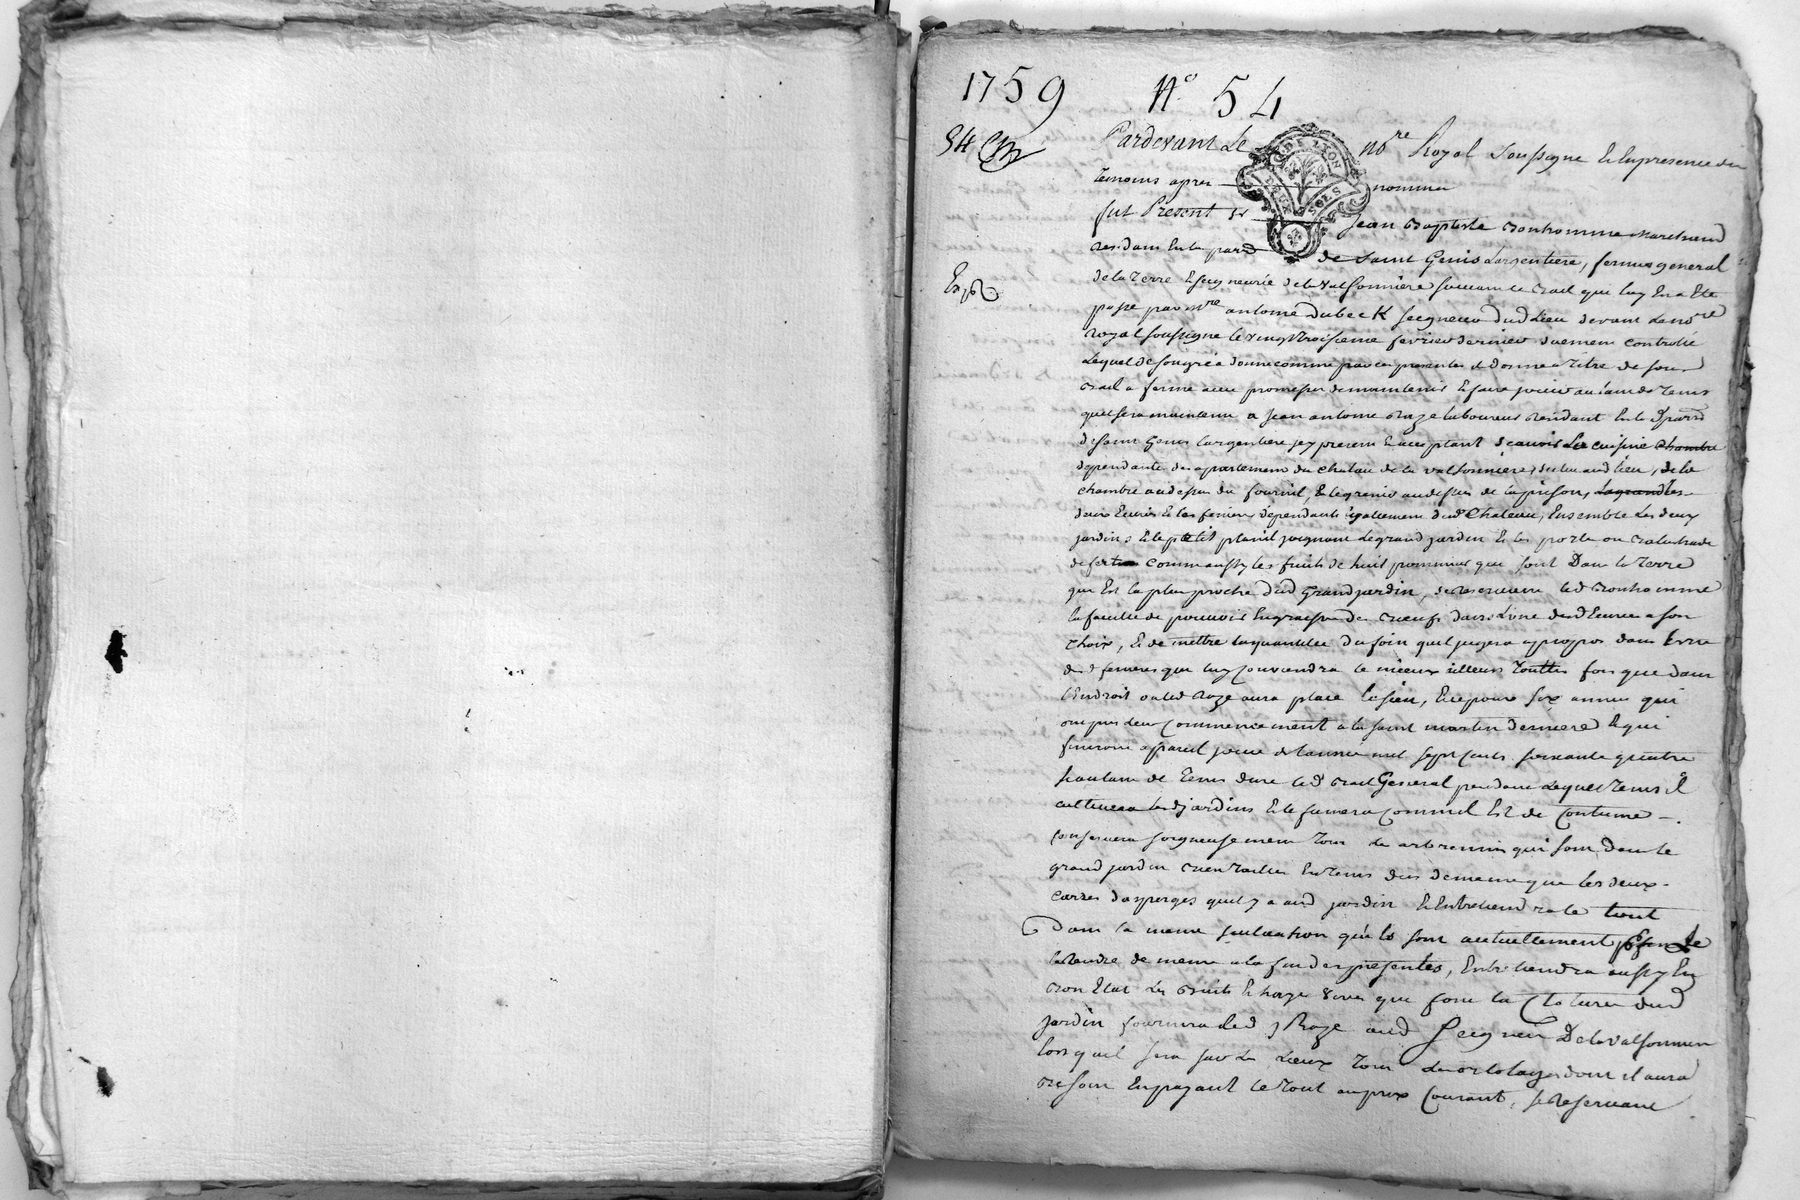 1759 N.° 54
54
DE LYON
DEUX SOLS
Pardevant Le no.re Royal soussigné & En presence des
temoins apres nommes
fut Present sr Jean Baptiste Bonhomme marchand
residant En la parr de Saint Genis Largentiere, fermier general
Exp
de la terre & seigneurie de la valsonniere suivant le Bail qui luy En a Eté
passé par m.re antoine Dubeck seigneur dud Lieu devant Le no.re
Royal soussigné le vingt troisieme fevrier dernier duement controllé
Lequel de son gré a donné comme par ces presentes il donne a titre de sous
Bail a ferme avec promesse de maintenir & faire jouir autant de tems
quil sera maintenu a Jean antoine Raze laboureur residant En lad parr
de Saint Genis Largentiere icy present & acceptant scavoir La cuisine chambre
dependante des apartemens du chateau de la valsonniere, dud lieu, de la
chambre audessus du fournil, & le grenier audessus de la prison, La grand les
deux Ecuries & les fenieres dependants également dud Chateau, Ensemble Les deux
jardins & le petit planil joignant Le grand jardin & les porte ou Balustrade
de fer comm aussy les fruits de huit pommiers qui sont Dans la terre
qui Est la plus proche dud Grand jardin, se reservant led Bonhomme
la faculté de pouvoir Engraisser des Boeufs dans L'une desd Ecuries a son
choix, & de mettre la quantitée du foin quil jugera apropos dans L'une
desd fenieres que luy conviendra le mieux ailleurs toutte fois que dans
l'Endroit ou led Raze aura placé le sien, & ce pour six années qui
ont pris leur commencement a la saint martin derniere & qui
finiront a pareil jour de l'année mil sept cents soixante quatre
si autant de tems dure led Bail General pendant Lequel tems il
cultivera lesd jardins & le fumera comm'il Est de Coutume
conservera soigneusement tous les arbre nains qui sont dans le
grand jardin Bien taillés En tems dus de meme que les deux
carres d'asperges quil y a aud jardin & Entretiendra le tout
Dans la meme situation qu'ils sont actuellement
la Rendre de meme a la fin des presentes, Entretiendra aussy En
Bon Etat Les Buits & hayes vives qui font la Cloture dud
Jardin fournira led Raze aud Seigneur De la valsonniere
lors quil sera sur les Lieux tous Les ortolages dont il aura
Besoin En payant le tout au prix Courant, se reservant